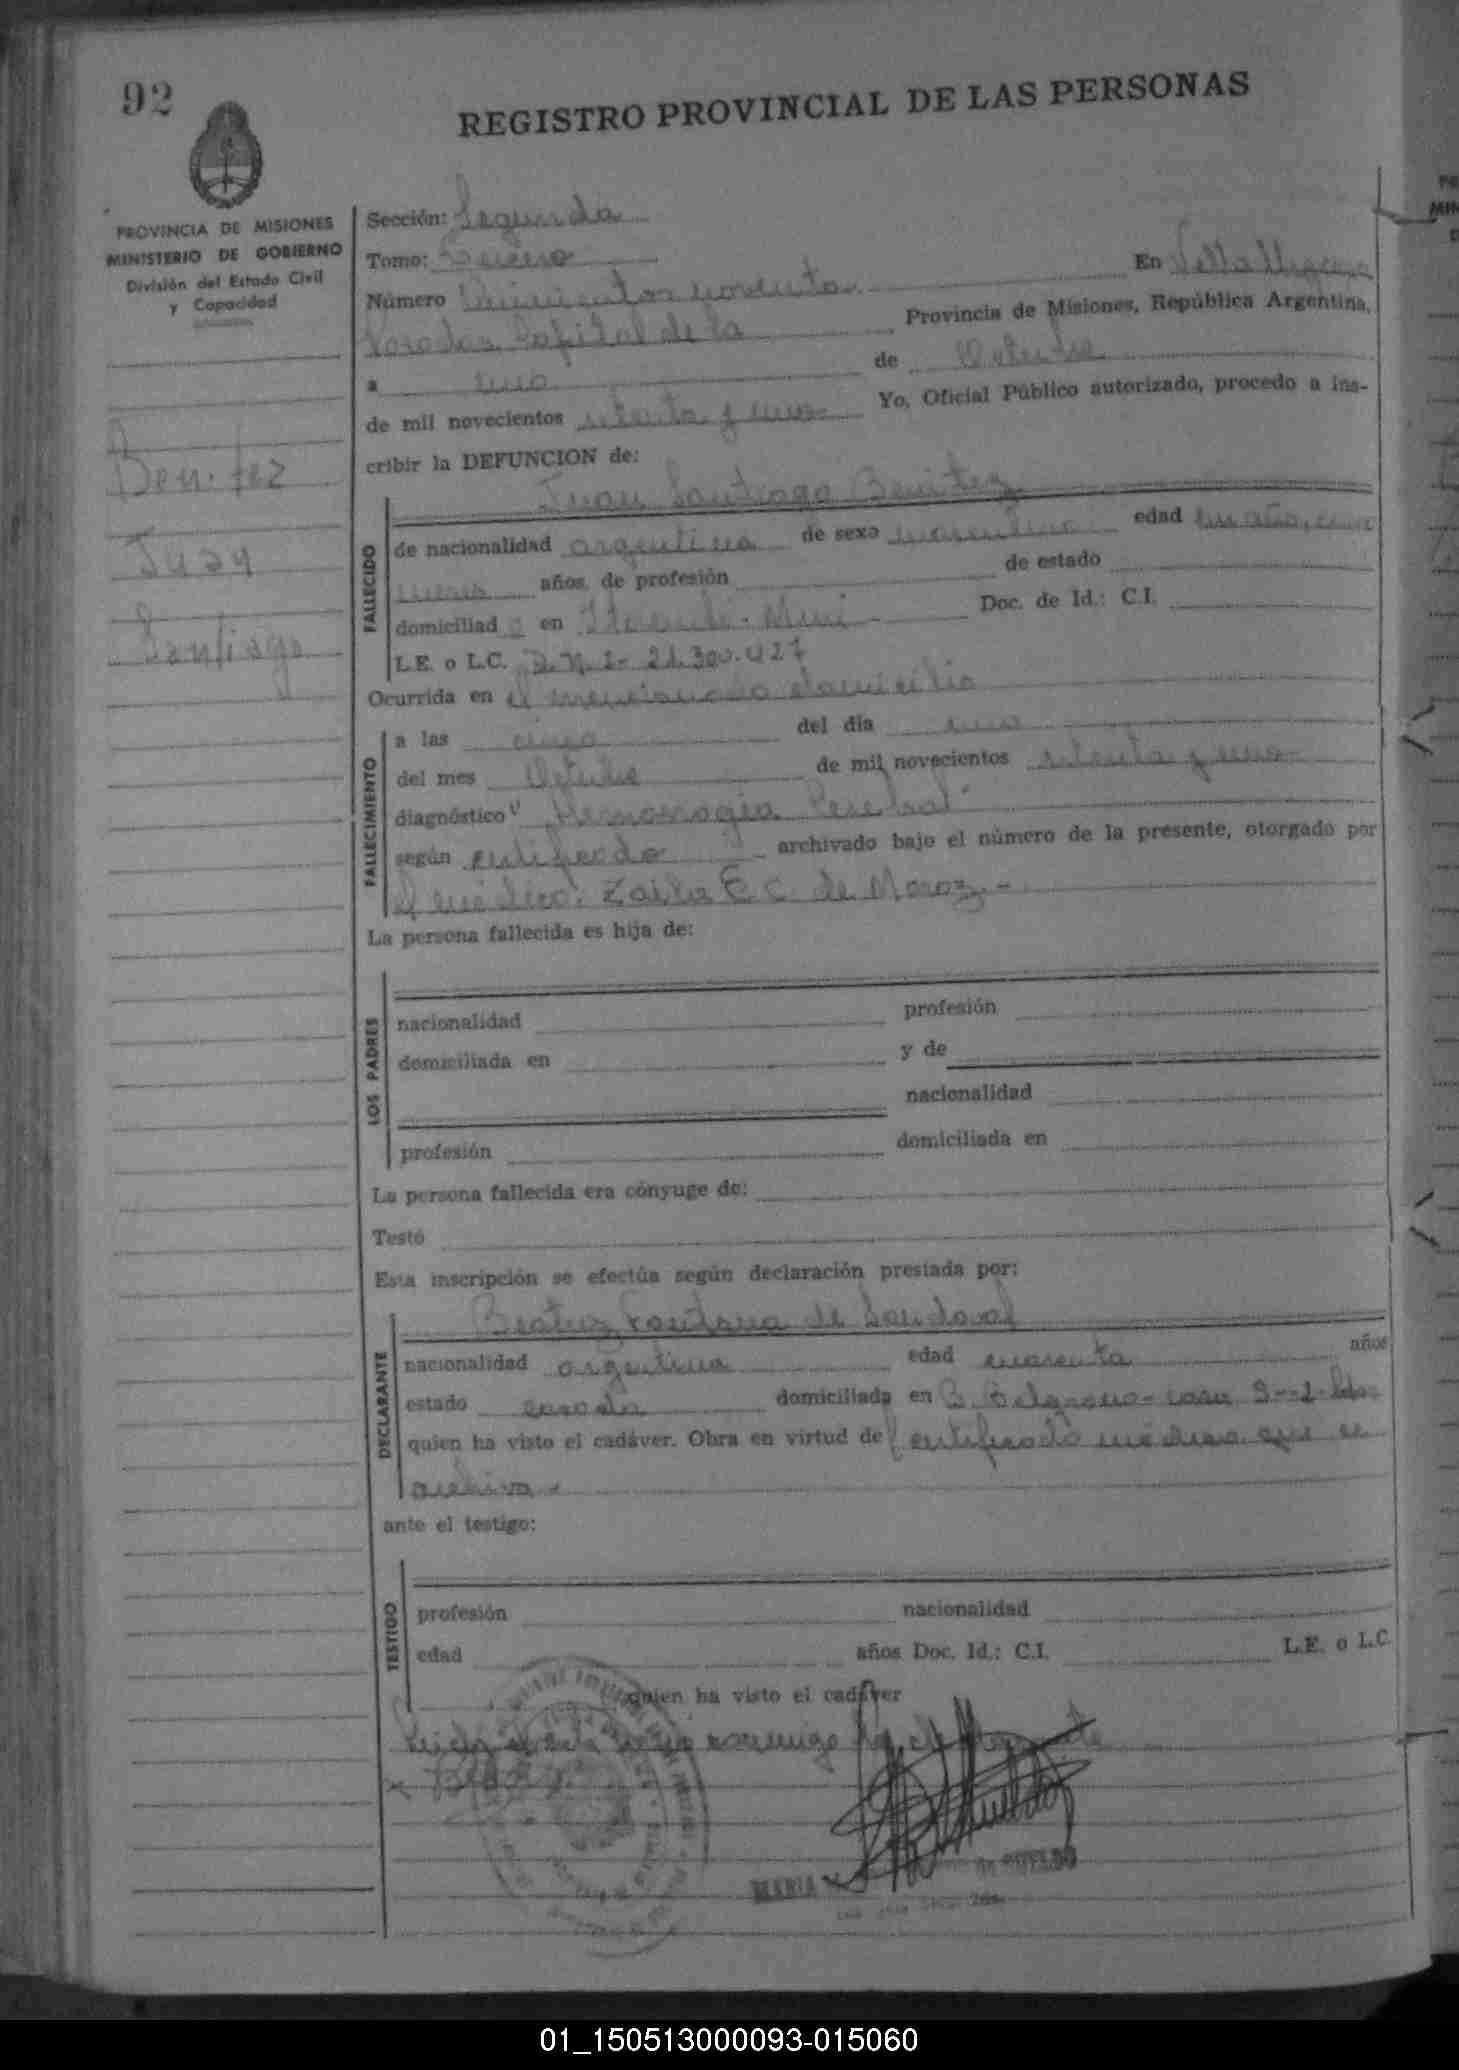 92
REGISTRO PROVINCIAL DE LAS PERSONAS
PROVINCIA DE MISIONES
MINISTERIO DE GOBIERNO
División del Estado Civil
y Capacidad
Benitez
Juan
Santiago
Sección: Segunda
Tomo: Tercero
Número noventa En Villa
Posadas Capital de la Provincia de Misiones, República Argentina,
a uno de Octubre
de mil novecientos setenta y uno Yo, Oficial Público autorizado, procedo a ins-
cribir la DEFUNCION de:
Juan Santiago Benitez
FALLECIDO
de nacionalidad argentina de sexo masculino edad un año,
meses años, de profesión de estado
domiciliad o en Itaembé-Miní Doc. de Id.: C.I.
L.E. o L.C. D.N.I- 21.300.427
Ocurrida en el mencionado domicilio
FALLECIMIENTO
a las cinco del día uno
del mes Octubre de mil novecientos setenta y uno
diagnóstico Hemorragia Cerebral
según certificado archivado bajo el número de la presente, otorgado por
el médico: Zaida E. C. de Moroz.-
La persona fallecida es hija de:
LOS PADRES
nacionalidad profesión
domiciliada en y de
nacionalidad
profesión domiciliada en
La persona fallecida era cónyuge de:
Testó
Esta inscripción se efectúa según declaración prestada por:
Beatriz de Sandoval
DECLARANTE
nacionalidad argentina edad cuarenta años
estado casada domiciliada en B. Belgrano- casa
quien ha visto el cadáver. Obra en virtud de certificado médico que se
archiva.-
ante el testigo:
TESTIGO
profesión nacionalidad
edad años Doc. Id.: C.I. L.E. o L.C.
quien ha visto el cadáver
Leida el acta firma conmigo
MARIA de SUELDO
01_150513000093-015060